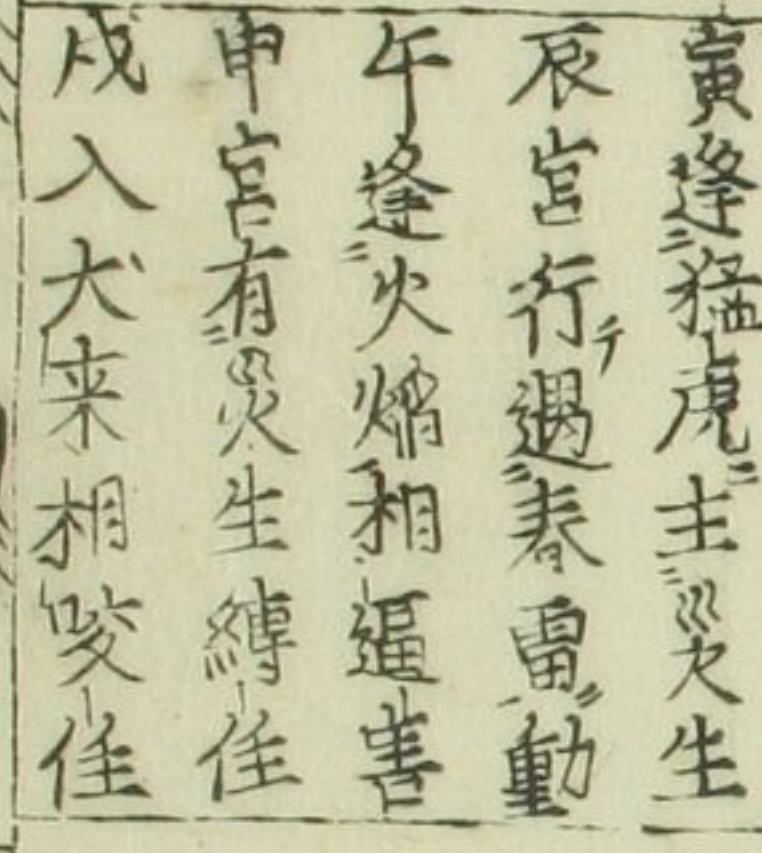 寅逢猛虎主災生
辰宮行テ遇春雷動
午逢火焔相逼害
申宮有災生縛住
戌入犬来相咬住